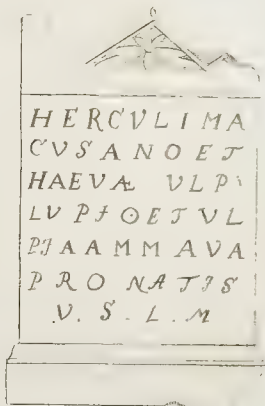 HERCVLI MA
CVSANO ET
HAEVÆ VLPI
LVPIO ET VL
PIA AMMAVA
PRO NATIS
V. S. L. M